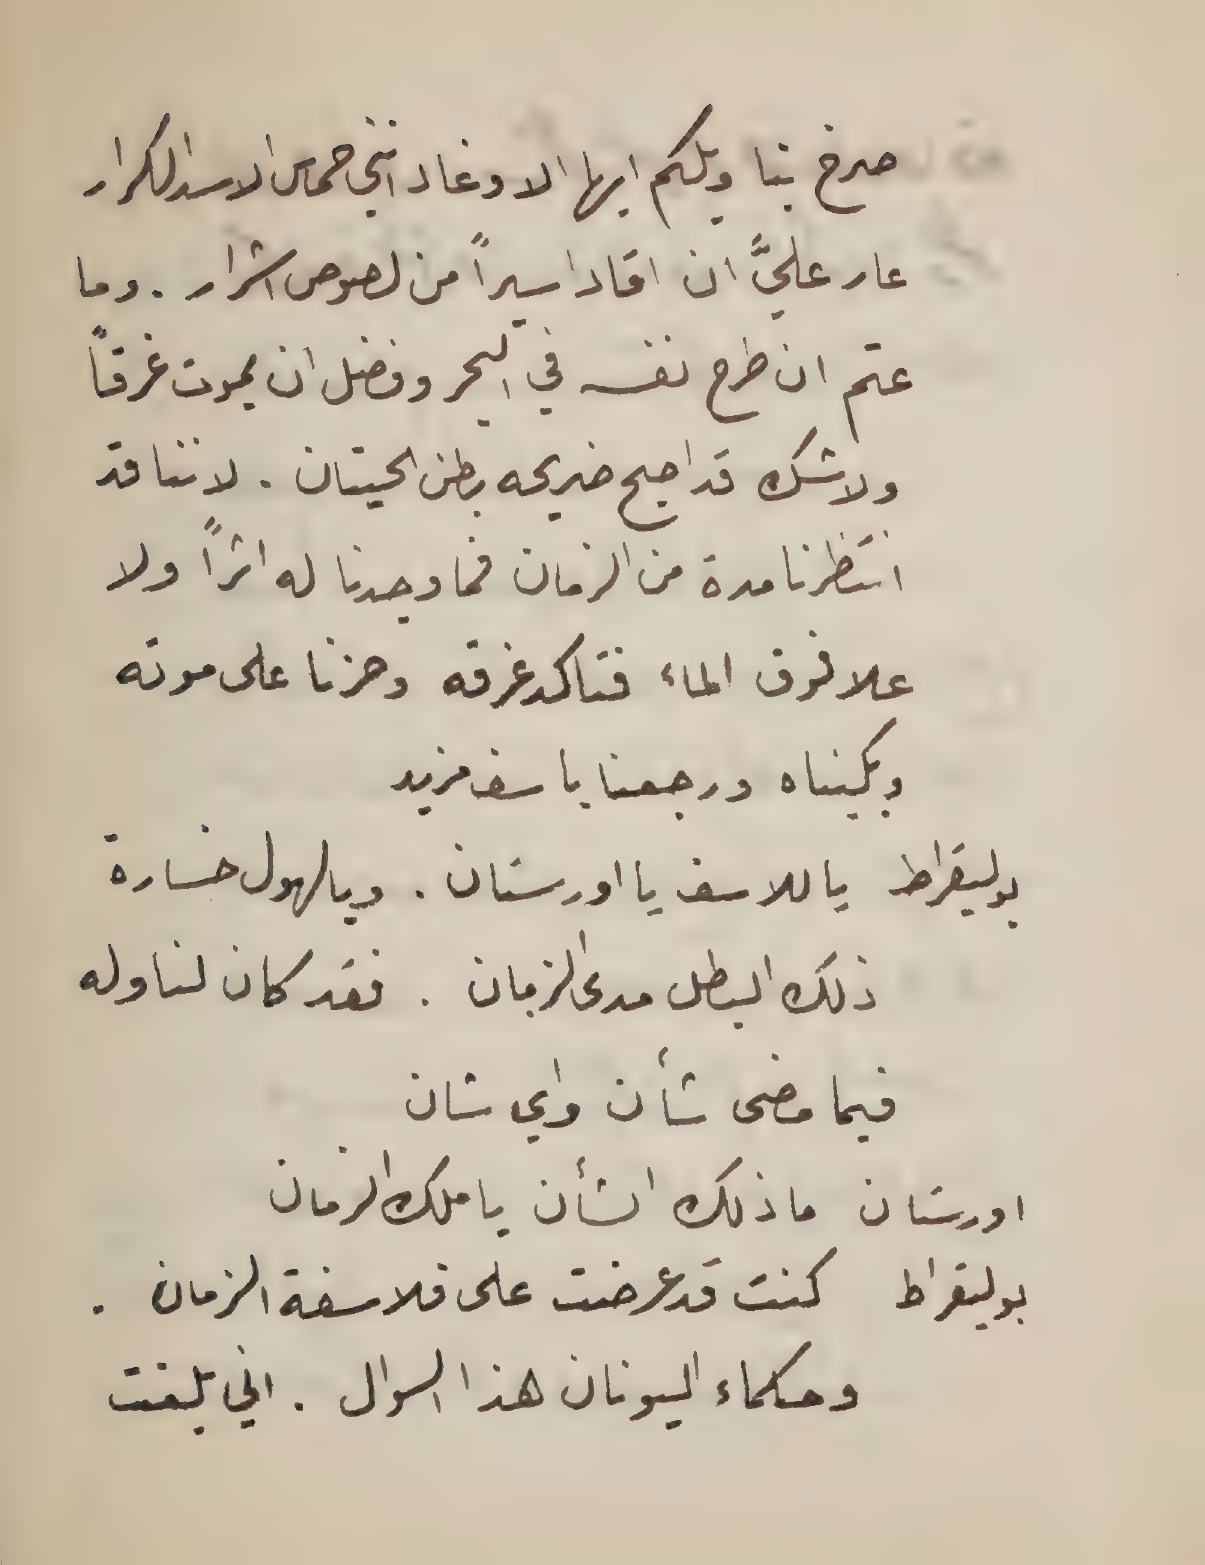 صرخ بنا ويلكم ايها الاوغاد انني حماس الاسد الكرار
عار عليَّ ان اقاد اسيراً من لصوص اشرار . وما
عتم ان طرح نفسه في البحر وفضل ان يموت غرقاً
ولا شك قد اصبح ضريحه بطن الحيتان . لاننا قد
انتظرنا مدة من الزمان فما وجدنا له اثراً ولا
علا فوق الماء فتاكد غرقه وحزنا على موته
وبكيناه ورجعنا باسف مزيد
بوليقراط ياللاسف يا اورستان . ويالهول خسارة
ذلك البطل مدى الزمان . فقد كان لنا وله
فيما مضى شأن واي شان
اورستان ما ذلك الشأن يا ملك الزمان
بوليقراط كنت قد عرضت على فلاسفة الزمان .
وحكماء اليونان هذا السوال . اني بلغت